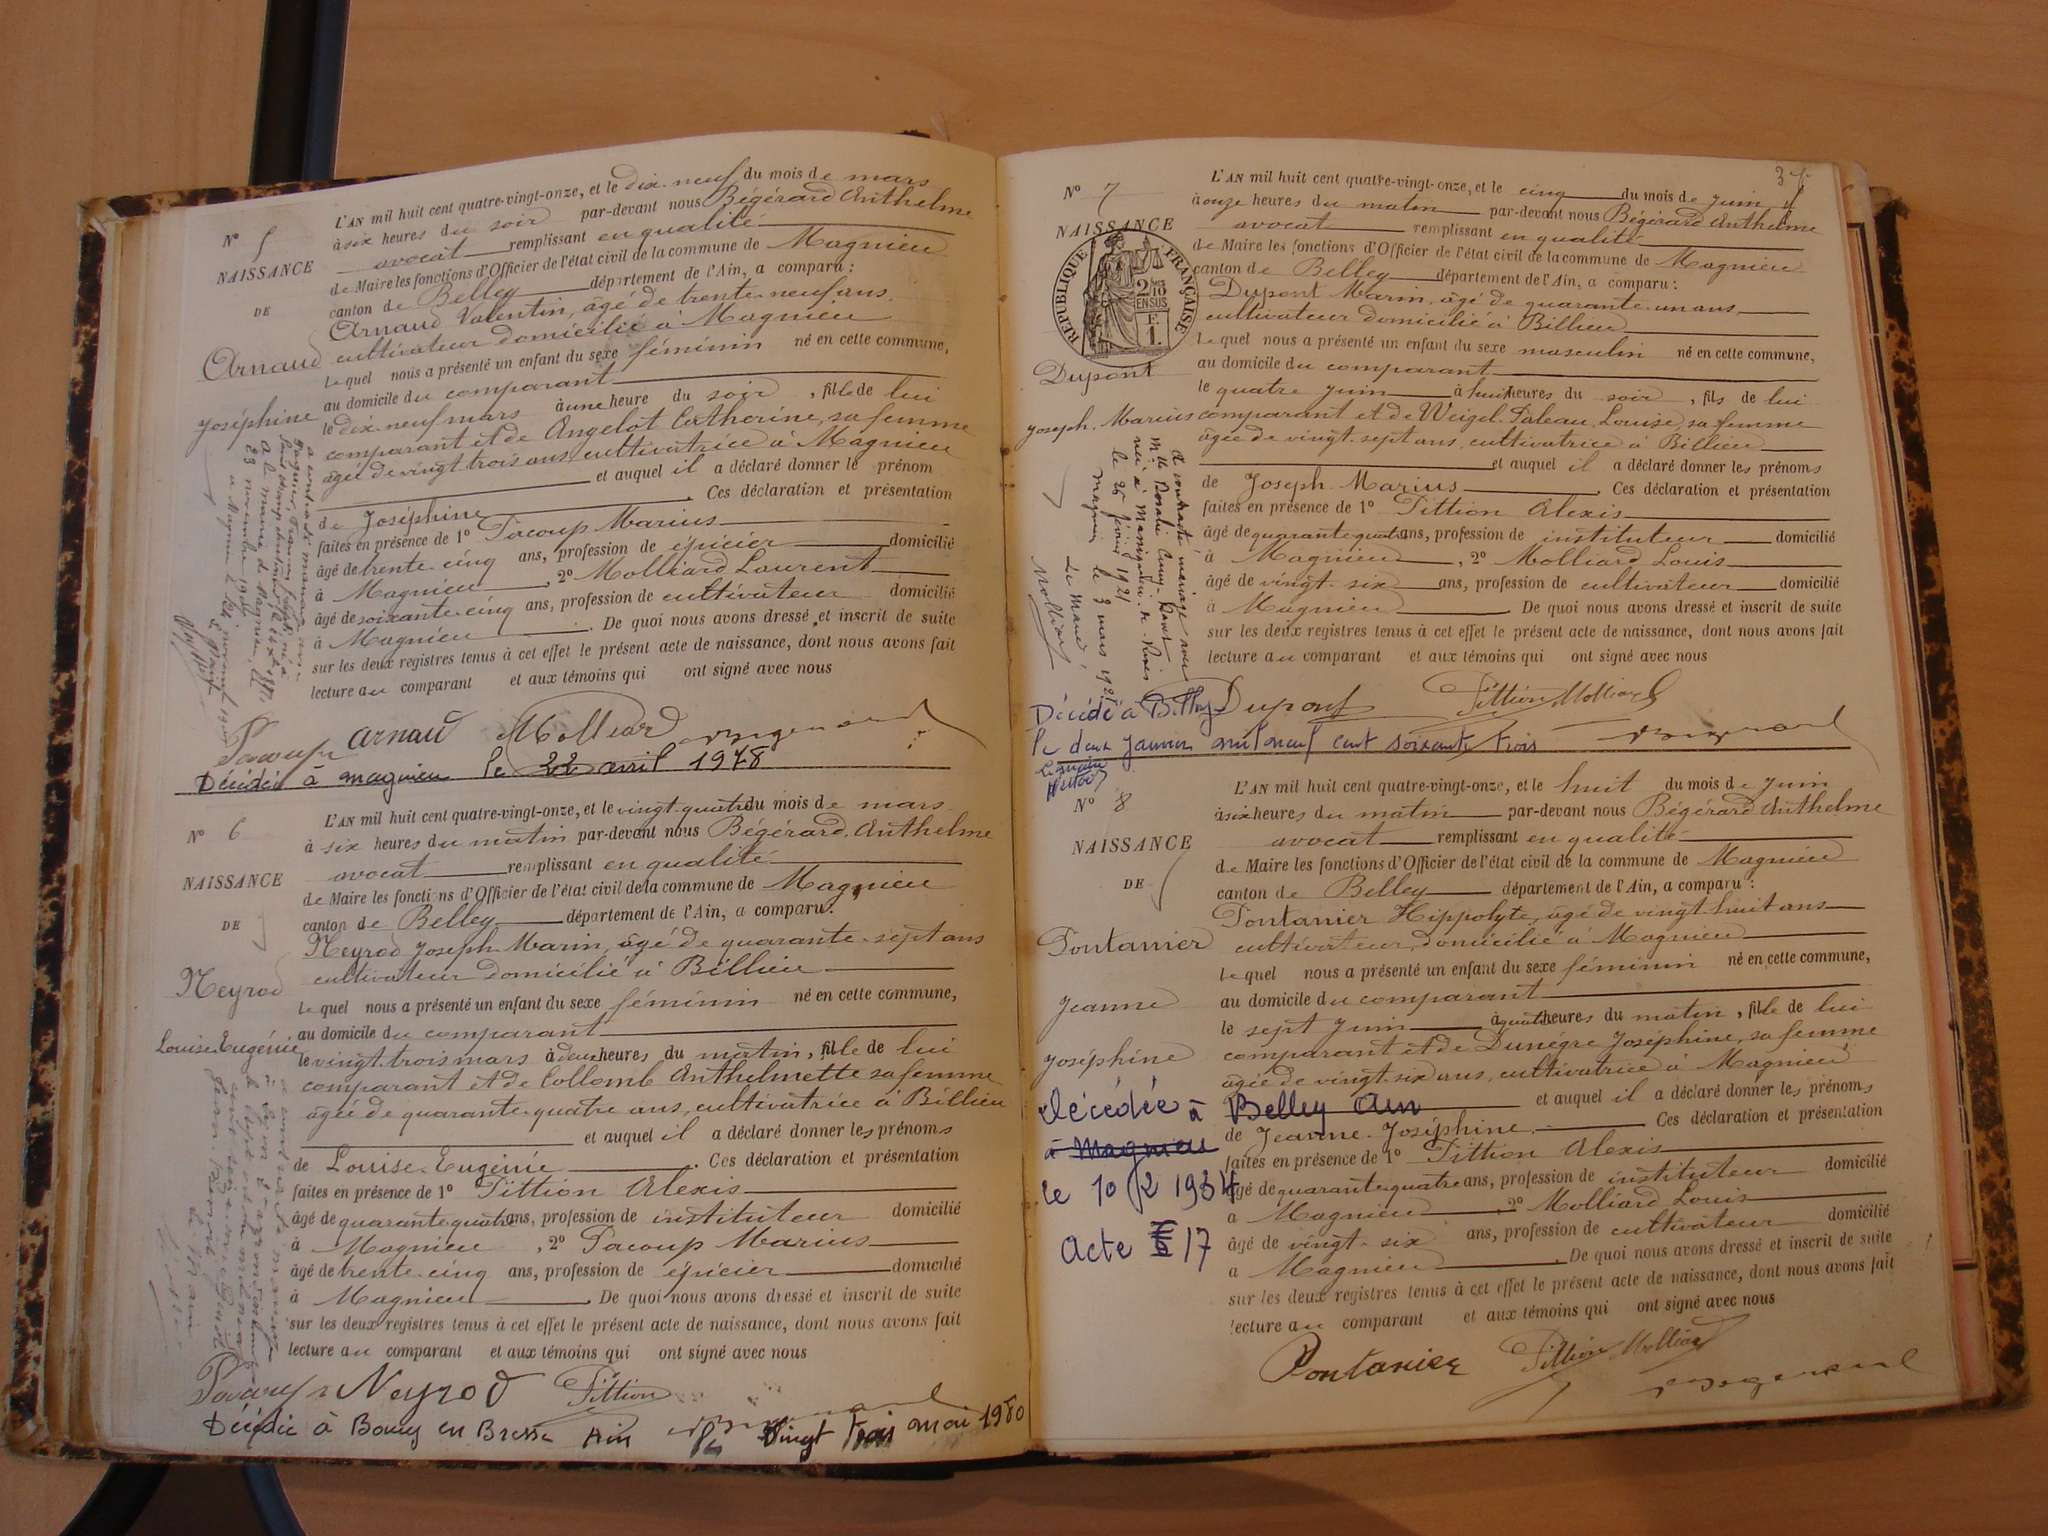 N° 5
NAISSANCE
DE
Arnaud
Joséphine
L'AN mil huit cent quatre-vingt-onze, et le dix-neuf du mois de mars
à six heures du soir par-devant nous Bégérard Anthelme
avocat remplissant en qualité
de Maire les fonctions d'Officier de l'état civil de la commune de Magnieu
canton de Belley département de l'Ain, a comparu :
Arnaud Valentin, âgé de trente-neuf ans
cultivateur domicilié à Magnieu
Lequel nous a présenté un enfant du sexe féminin né en cette commune,
au domicile du comparant
le dix-neuf mars à une heure du soir, fille de lui
comparant et de Angelot Catherine, sa femme
âgée de vingt trois ans cultivatrice à Magnieu
et auquel il a déclaré donner le prénom
de Joséphine. Ces déclaration et présentation
faites en présence de 1° Pacoup Marius
âgé de trente-cinq ans, profession de épicier domicilié
à Magnieu, 2° Molliard Laurent
âgé de soixante-cinq ans, profession de cultivateur domicilié
à Magnieu. De quoi nous avons dressé et inscrit de suite
sur les deux registres tenus à cet effet le présent acte de naissance, dont nous avons fait
lecture au comparant et aux témoins qui ont signé avec nous
Pacoup Arnaud Molliard
Décédée à magnieu le 22 avril 1978
N° 6
NAISSANCE
DE
Neyrod
Louise-Eugénie
L'AN mil huit cent quatre-vingt-onze, et le vingt-quatre du mois de mars
à six heures du matin par-devant nous Bégérard Anthelme
avocat remplissant en qualité
de Maire les fonctions d'Officier de l'état civil de la commune de Magnieu
canton de Belley département de l'Ain, a comparu :
Neyrod Joseph-Marin, âgé de quarante-sept ans
cultivateur domicilié à Billieu
Lequel nous a présenté un enfant du sexe féminin né en cette commune,
au domicile du comparant
le vingt-trois mars à deux heures du matin, fille de lui
comparant et de Collomb Anthelmette sa femme
âgée de quarante-quatre ans, cultivatrice à Billieu
et auquel il a déclaré donner les prénoms
de Louise-Eugénie. Ces déclaration et présentation
faites en présence de 1° Pittion Alexis
âgé de quarante quatre ans, profession de instituteur domicilié
à Magnieu, 2° Pacoup Marius
âgé de trente-cinq ans, profession de épicier domicilié
à Magnieu. De quoi nous avons dressé et inscrit de suite
sur les deux registres tenus à cet effet le présent acte de naissance, dont nous avons fait
lecture au comparant et aux témoins qui ont signé avec nous
Neyrod Pittion
Décédée à Bourg en Bresse Ain le Vingt trois mai 1980
N° 7
NAISSANCE
RÉPUBLIQUE FRANÇAISE
EN SUS
Dupont
Joseph-Marius
L'AN mil huit cent quatre-vingt-onze, et le cinq du mois de juin
à onze heures du matin par-devant nous Bégérard Anthelme
avocat remplissant en qualité
de Maire les fonctions d'Officier de l'état civil de la commune de Magnieu
canton de Belley département de l'Ain, a comparu :
Dupont Marin, âgé de quarante-un ans
cultivateur domicilié à Billieu
Lequel nous a présenté un enfant du sexe masculin né en cette commune,
au domicile du comparant
le quatre juin à huit heures du soir, fils de lui
comparant et de Weigel Louise, sa femme
âgée de vingt-sept ans, cultivatrice à Billieu
et auquel il a déclaré donner les prénoms
de Joseph-Marius. Ces déclaration et présentation
faites en présence de 1° Pittion Alexis
âgé de quarante quatre ans, profession de instituteur domicilié
à Magnieu, 2° Molliard Louis
âgé de vingt-six ans, profession de cultivateur domicilié
à Magnieu. De quoi nous avons dressé et inscrit de suite
sur les deux registres tenus à cet effet le présent acte de naissance, dont nous avons fait
lecture au comparant et aux témoins qui ont signé avec nous
A contracté mariage avec
le 26 février 1921
Magnieu le 3 mars 1921
Le Maire,
Molliard
Dupont Pittion Molliard
Décédé à Belley
le deux janvier mil neuf cent soixante trois
N° 8
NAISSANCE
DE
Pontanier
Jeanne
Joséphine
L'AN mil huit cent quatre-vingt-onze, et le huit du mois de juin
à six heures du matin par-devant nous Bégérard Anthelme
avocat remplissant en qualité
de Maire les fonctions d'Officier de l'état civil de la commune de Magnieu
canton de Belley département de l'Ain, a comparu :
Pontanier Hippolyte, âgé de vingt-huit ans
cultivateur, domicilié à Magnieu
Lequel nous a présenté un enfant du sexe féminin né en cette commune,
au domicile du comparant
le sept juin à quatre heures du matin, fille de lui
comparant et de Dunégre Joséphine, sa femme
âgée de vingt-six ans, cultivatrice à Magnieu
et auquel il a déclaré donner les prénoms
de Jeanne-Joséphine. Ces déclaration et présentation
faites en présence de 1° Pittion Alexis
âgé de quarante quatre ans, profession de instituteur domicilié
à Magnieu, 2° Molliard Louis
âgé de vingt-six ans, profession de cultivateur domicilié
à Magnieu. De quoi nous avons dressé et inscrit de suite
sur les deux registres tenus à cet effet le présent acte de naissance, dont nous avons fait
lecture au comparant et aux témoins qui ont signé avec nous
Décédée à Belley Ain
à Magnieu
le 10/2 1984
acte 17
Pontanier Pittion Molliard